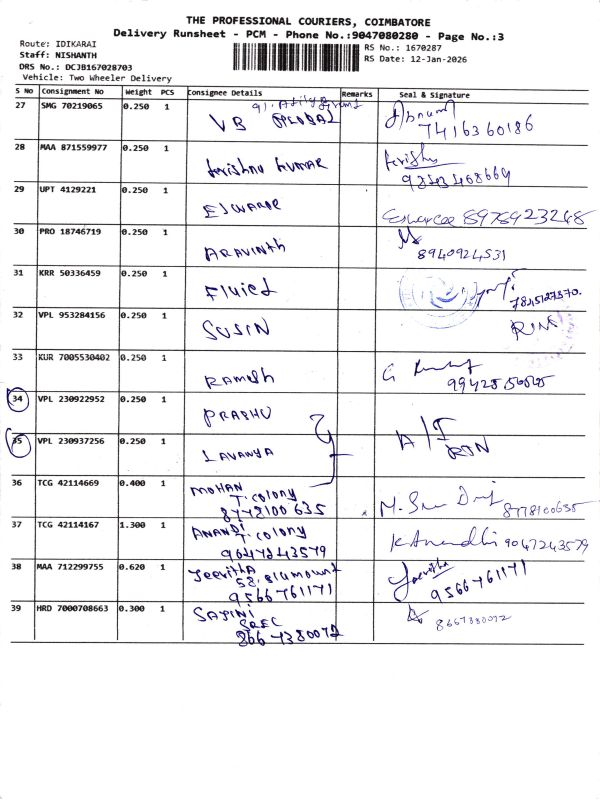 THE PROFESSIONAL COURIERS, COIMBATORE
Delivery Runsheet - PCM - Phone No.:9047080280 - Page No.:3
Route: IDIKARAI
Staff: NISHANTH
DRS No.: DCJB167028703
Vehicle: Two Wheeler Delivery
RS No.: 1670287
RS Date: 12-Jan-2026
S No Consignment No Weight PCS Consignee Details Remarks Seal & Signature
27 SMG 70219065 0.250 1 VB GLOBAL 7416360186
28 MAA 871559977 0.250 1 Krishna KUMAR Krishna 9843468669
29 UPT 4129221 0.250 1 ESWARR Eswaree 8978923248
30 PRO 18746719 0.250 1 ARAVINTH 8940924531
31 KRR 50336459 0.250 1 Fluied
32 VPL 953284156 0.250 1 SUSIN
33 KUR 7005530402 0.250 1 RAMESH
34 VPL 230922952 0.250 1 PRABHU
35 VPL 230937256 0.250 1 LAVANYA RTN
36 TCG 42114669 0.400 1 MOHAN
T. colony
8778100635 8778100635
37 TCG 42114167 1.300 1 ANANDI
T. colony
9047243579 K Anandhi 9047243579
38 MAA 712299755 0.620 1 Jeevitha
9566761171 Jeevitha 9566761171
39 HRD 7000708663 0.300 1 SAJINI
SREC
8667380072 8667380072